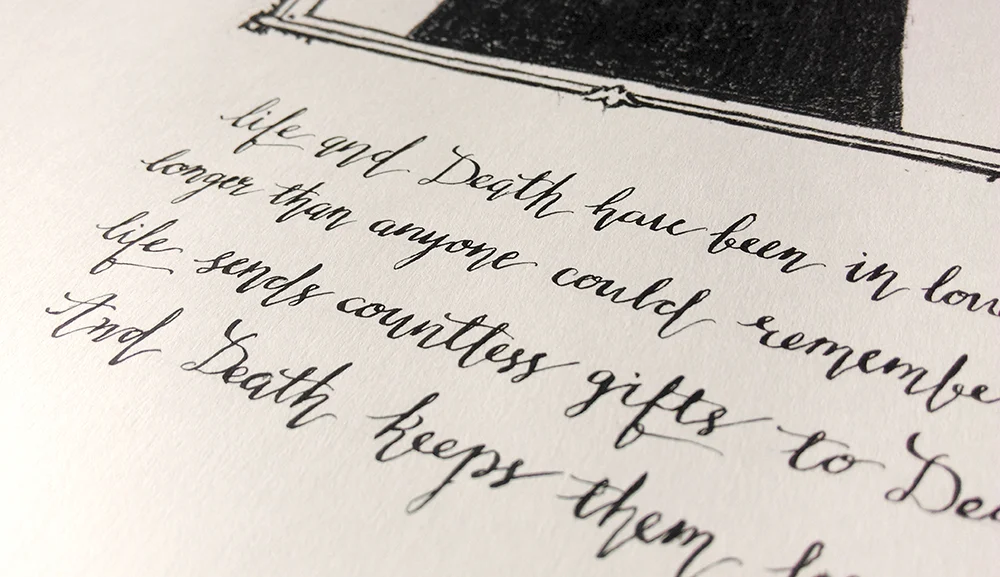 life and Death have been in
longer than anyone could
life sends countless gifts to
And Death keeps them